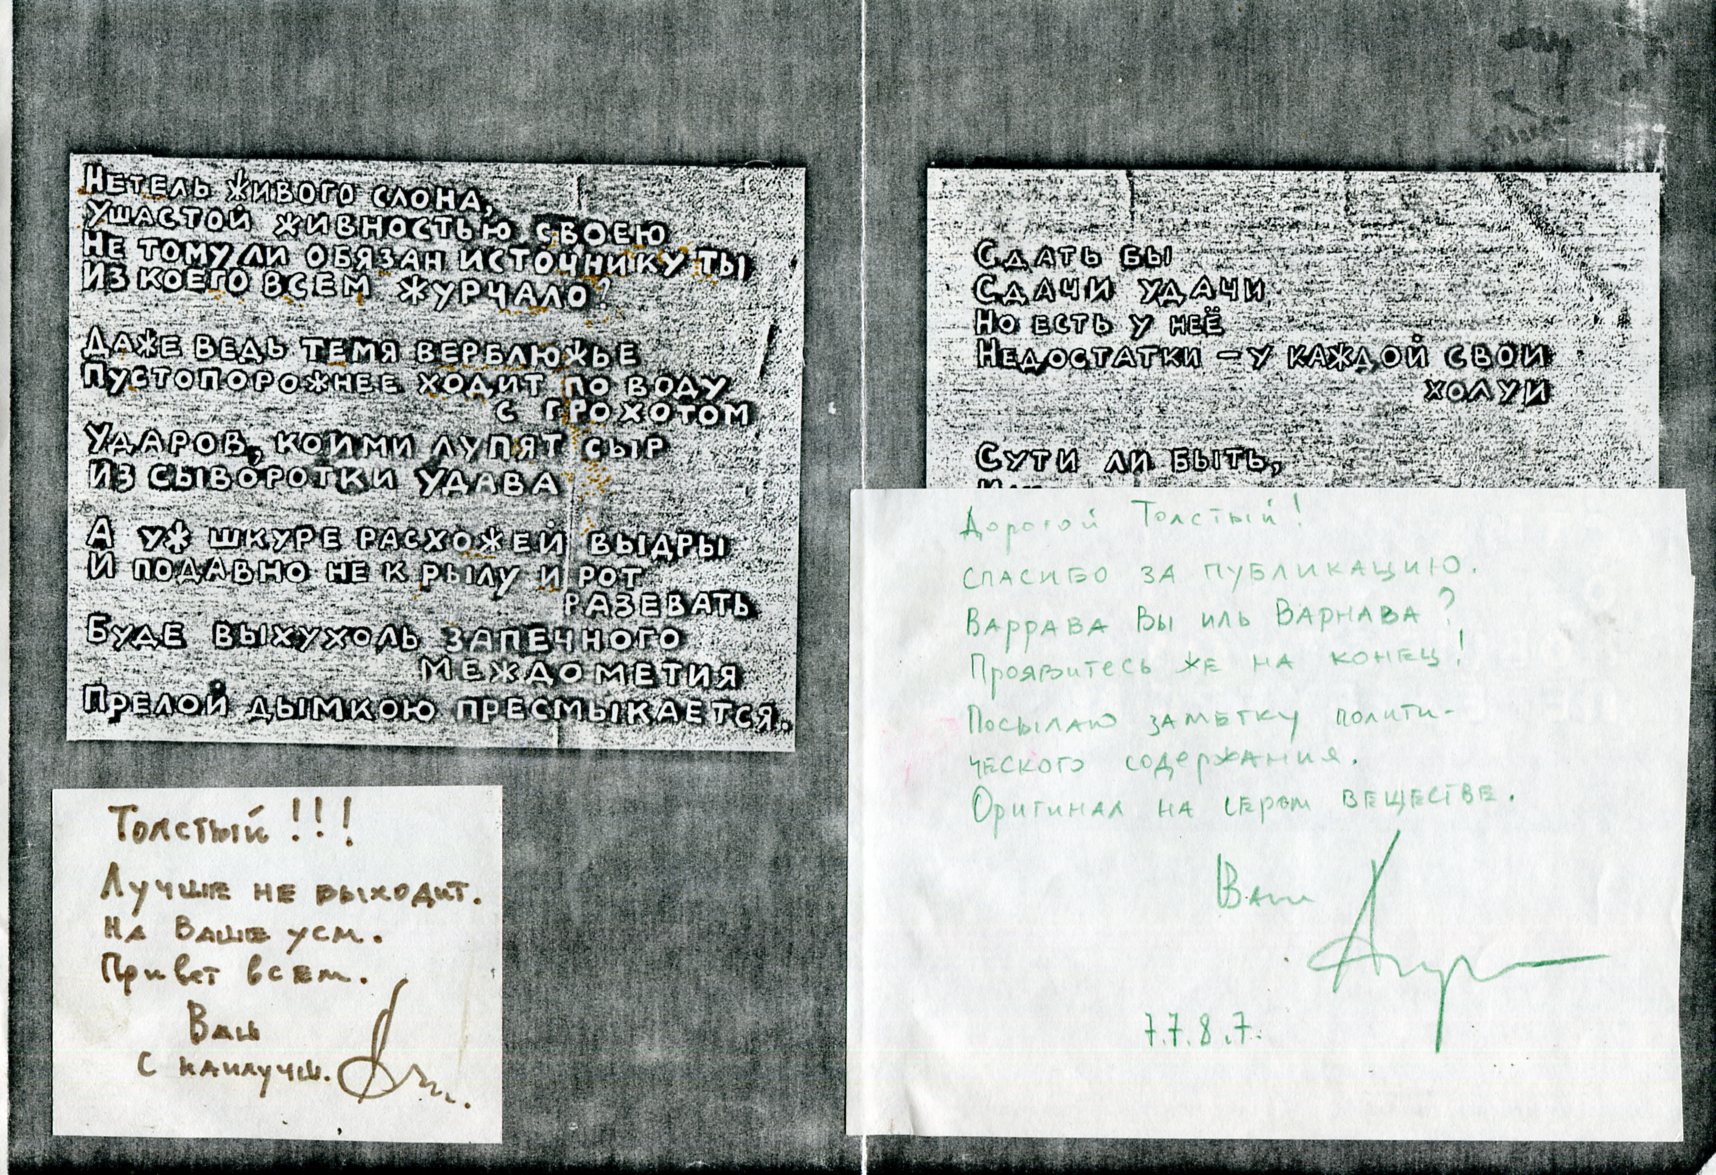 НЕТЕЛЬ ЖИВОГО СЛОНА,
УШАСТОЙ ЖИВНОСТЬЮ СВОЕЮ
НЕ ТОМУ ЛИ ОБЯЗАН ИСТОЧНИКУ ТЫ
ИЗ КОЕГО ВСЕМ ЖУРЧАЛО?
ДАЖЕ ВЕДЬ ТЕМЯ ВЕРБЛЮЖЬЕ
ПУСТОПОРОЖНЕЕ ХОДИТ ПО ВОДУ
С ГРОХОТОМ
УДАРОВ, КОИМИ ЛУПЯТ СЫР
ИЗ СЫВОРОТКИ УДАВА
А УЖ ШКУРЕ РАСХОЖЕЙ ВЫДРЫ
И ПОДАВНО НЕ К РЫЛУ И РОТ
РАЗЕВАТЬ
БУДЕ ВЫХУХОЛЬ ЗАПЕЧНОГО
МЕЖДОМЕТИЯ
ПРЕЛОЙ ДЫМКОЮ ПРЕСМЫКАЕТСЯ.
Толстый!!!
Лучше не выходит.
На Ваше усм.
Привет всем.
Ваш
С наилучш.
СДАТЬ БЫ
СДАЧИ УДАЧИ
НО ЕСТЬ У НЕЁ
НЕДОСТАТКИ – У КАЖДОЙ СВОИ
ХОЛУИ
СУТИ ЛИ БЫТЬ,
Дорогой Толстый!
Спасибо за публикацию.
Варрава Вы иль Варнава?
Проявитесь же на конец!
Посылаю заметку полити-
ческого содержания.
Оригинал на сером веществе.
Ваш
7.7.8.7.